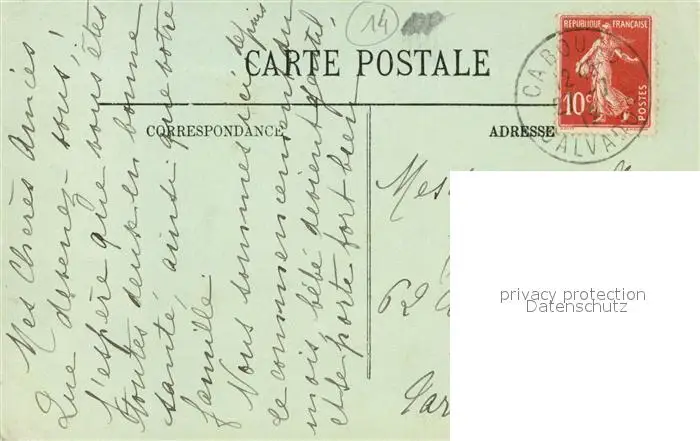 14
CARTE POSTALE
CORRESPONDANCE
ADRESSE
REPUBLIQUE FRANÇAISE
10c
POSTES
CABOU
CALVA
Mes Chères Amies
Que devenez-vous!
J'espère que vous êtes
toutes deux en bonne
santé, ainsi que votre
famille.
Nous sommes ici depuis
le commencement du
mois, bébé devient gentil,
et se porte fort bien
Mes
62
Par
privacy protection
Datenschutz